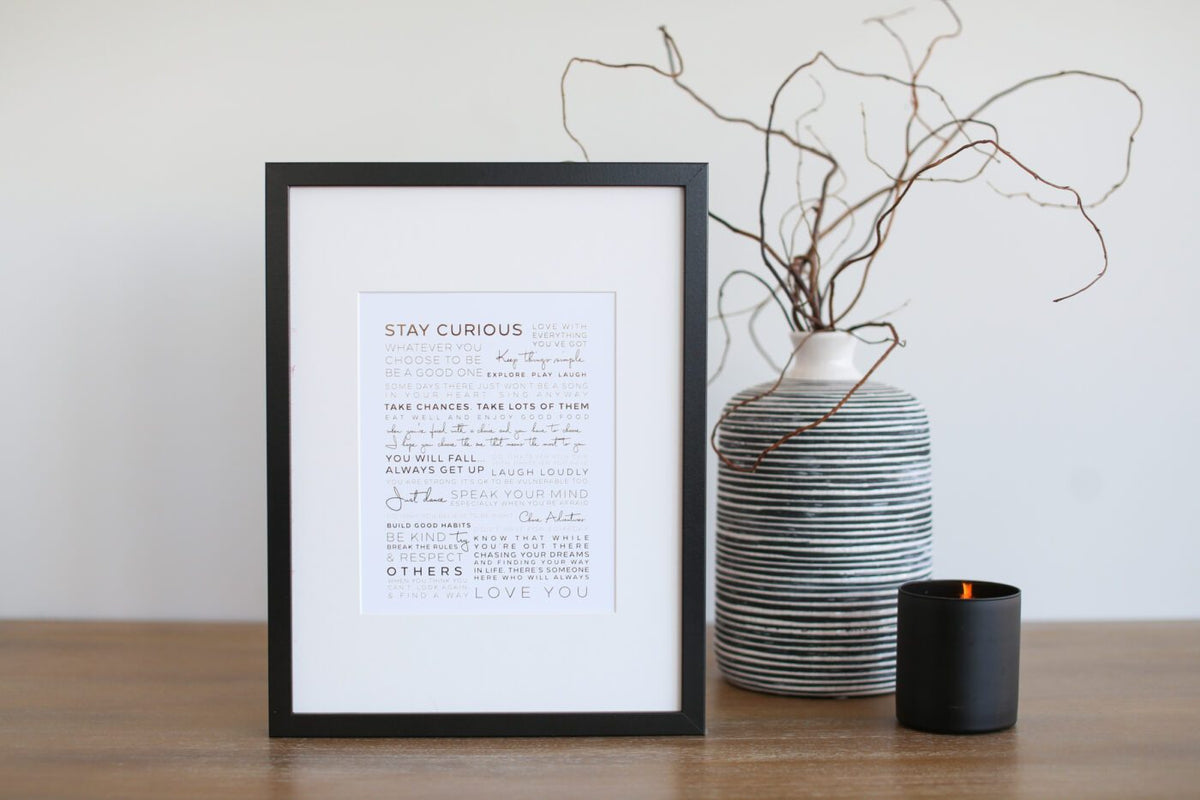 STAY CURIOUS
LOVE WITH
EVERYTHING
YOU'VE GOT
WHATEVER YOU
CHOOSE TO BE
BE A GOOD ONE
Keep things simple
EXPLORE. PLAY. LAUGH
SOME DAYS THERE JUST WON'T BE A SONG
IN YOUR HEART. SING ANYWAY
TAKE CHANCES. TAKE LOTS OF THEM
EAT WELL AND ENJOY GOOD FOOD
when you're faced with a choice and you have to choose
I hope you choose the one that means the most to you
YOU WILL FALL...
ALWAYS GET UP
LAUGH LOUDLY
YOU ARE STRONG. IT'S OK TO BE VULNERABLE TOO
Just dance
SPEAK YOUR MIND
ESPECIALLY WHEN YOU'RE AFRAID
Chase Adventures
BUILD GOOD HABITS
BE KIND try
BREAK THE RULES
& RESPECT
OTHERS
WHEN YOU THINK YOU
CAN'T, LOOK AGAIN
& FIND A WAY
KNOW THAT WHILE
YOU'RE OUT THERE
CHASING YOUR DREAMS
AND FINDING YOUR WAY
IN LIFE, THERE'S SOMEONE
HERE WHO WILL ALWAYS
LOVE YOU